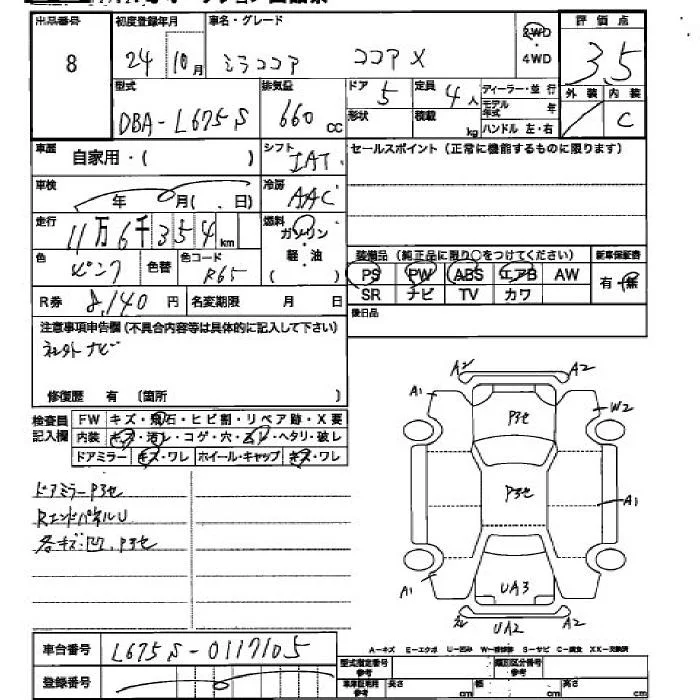 出品番号 初度登録年月 車名・グレード 評価点
8 24年 10月 ミラココア ココア X 2WD ・ 4WD 3.5
外装 内装
C
型式 排気量 ドア 定員 ディーラー・並行
DBA-L675S 660 cc 5 4人 モデル年式 年
形状 積載 kg ハンドル 左・右
車歴 自家用・( ) シフト IAT セールスポイント(正常に機能するものに限ります)
車検 年 月( . 日) 冷房 AAC
走行 11万6千354km 燃料 ガソリン・軽・油 ( )
色 ピンク 色替 色コード R65
装備品(純正品に限り○をつけてください) 新車保証書
PS PW ABS エアB AW 有・無
SR ナビ TV カワ
R券 8,140円 名変期限 月 日 後日品
注意事項申告欄(不具合内容等は具体的に記入して下さい)
ナビ
修復歴 有 〔箇所 〕
検査員記入欄 FW キズ・飛石・ヒビ割・リペア跡・X要
内装 キズ・汚レ・コゲ・穴・ ・ヘタリ・破レ
ドアミラー キズ・ワレ ホイール・キャップ キズ・ワレ
ドアミラーPヨセ
RエンドパネルU
各キズ.凹.Pヨセ
A2 A2
A1 W2
Pヨセ
Pヨセ
A1
A1 UA3 A2
UA2
車台番号 L675S-0117105
登録番号
A-キズ E-エクボ U-凹み W-補修跡 S-サビ C-腐食 XX-交換済
型式指定番号 参考 類別区分番号 参考
車庫証明用 参考 長さ cm 幅 cm 高さ cm